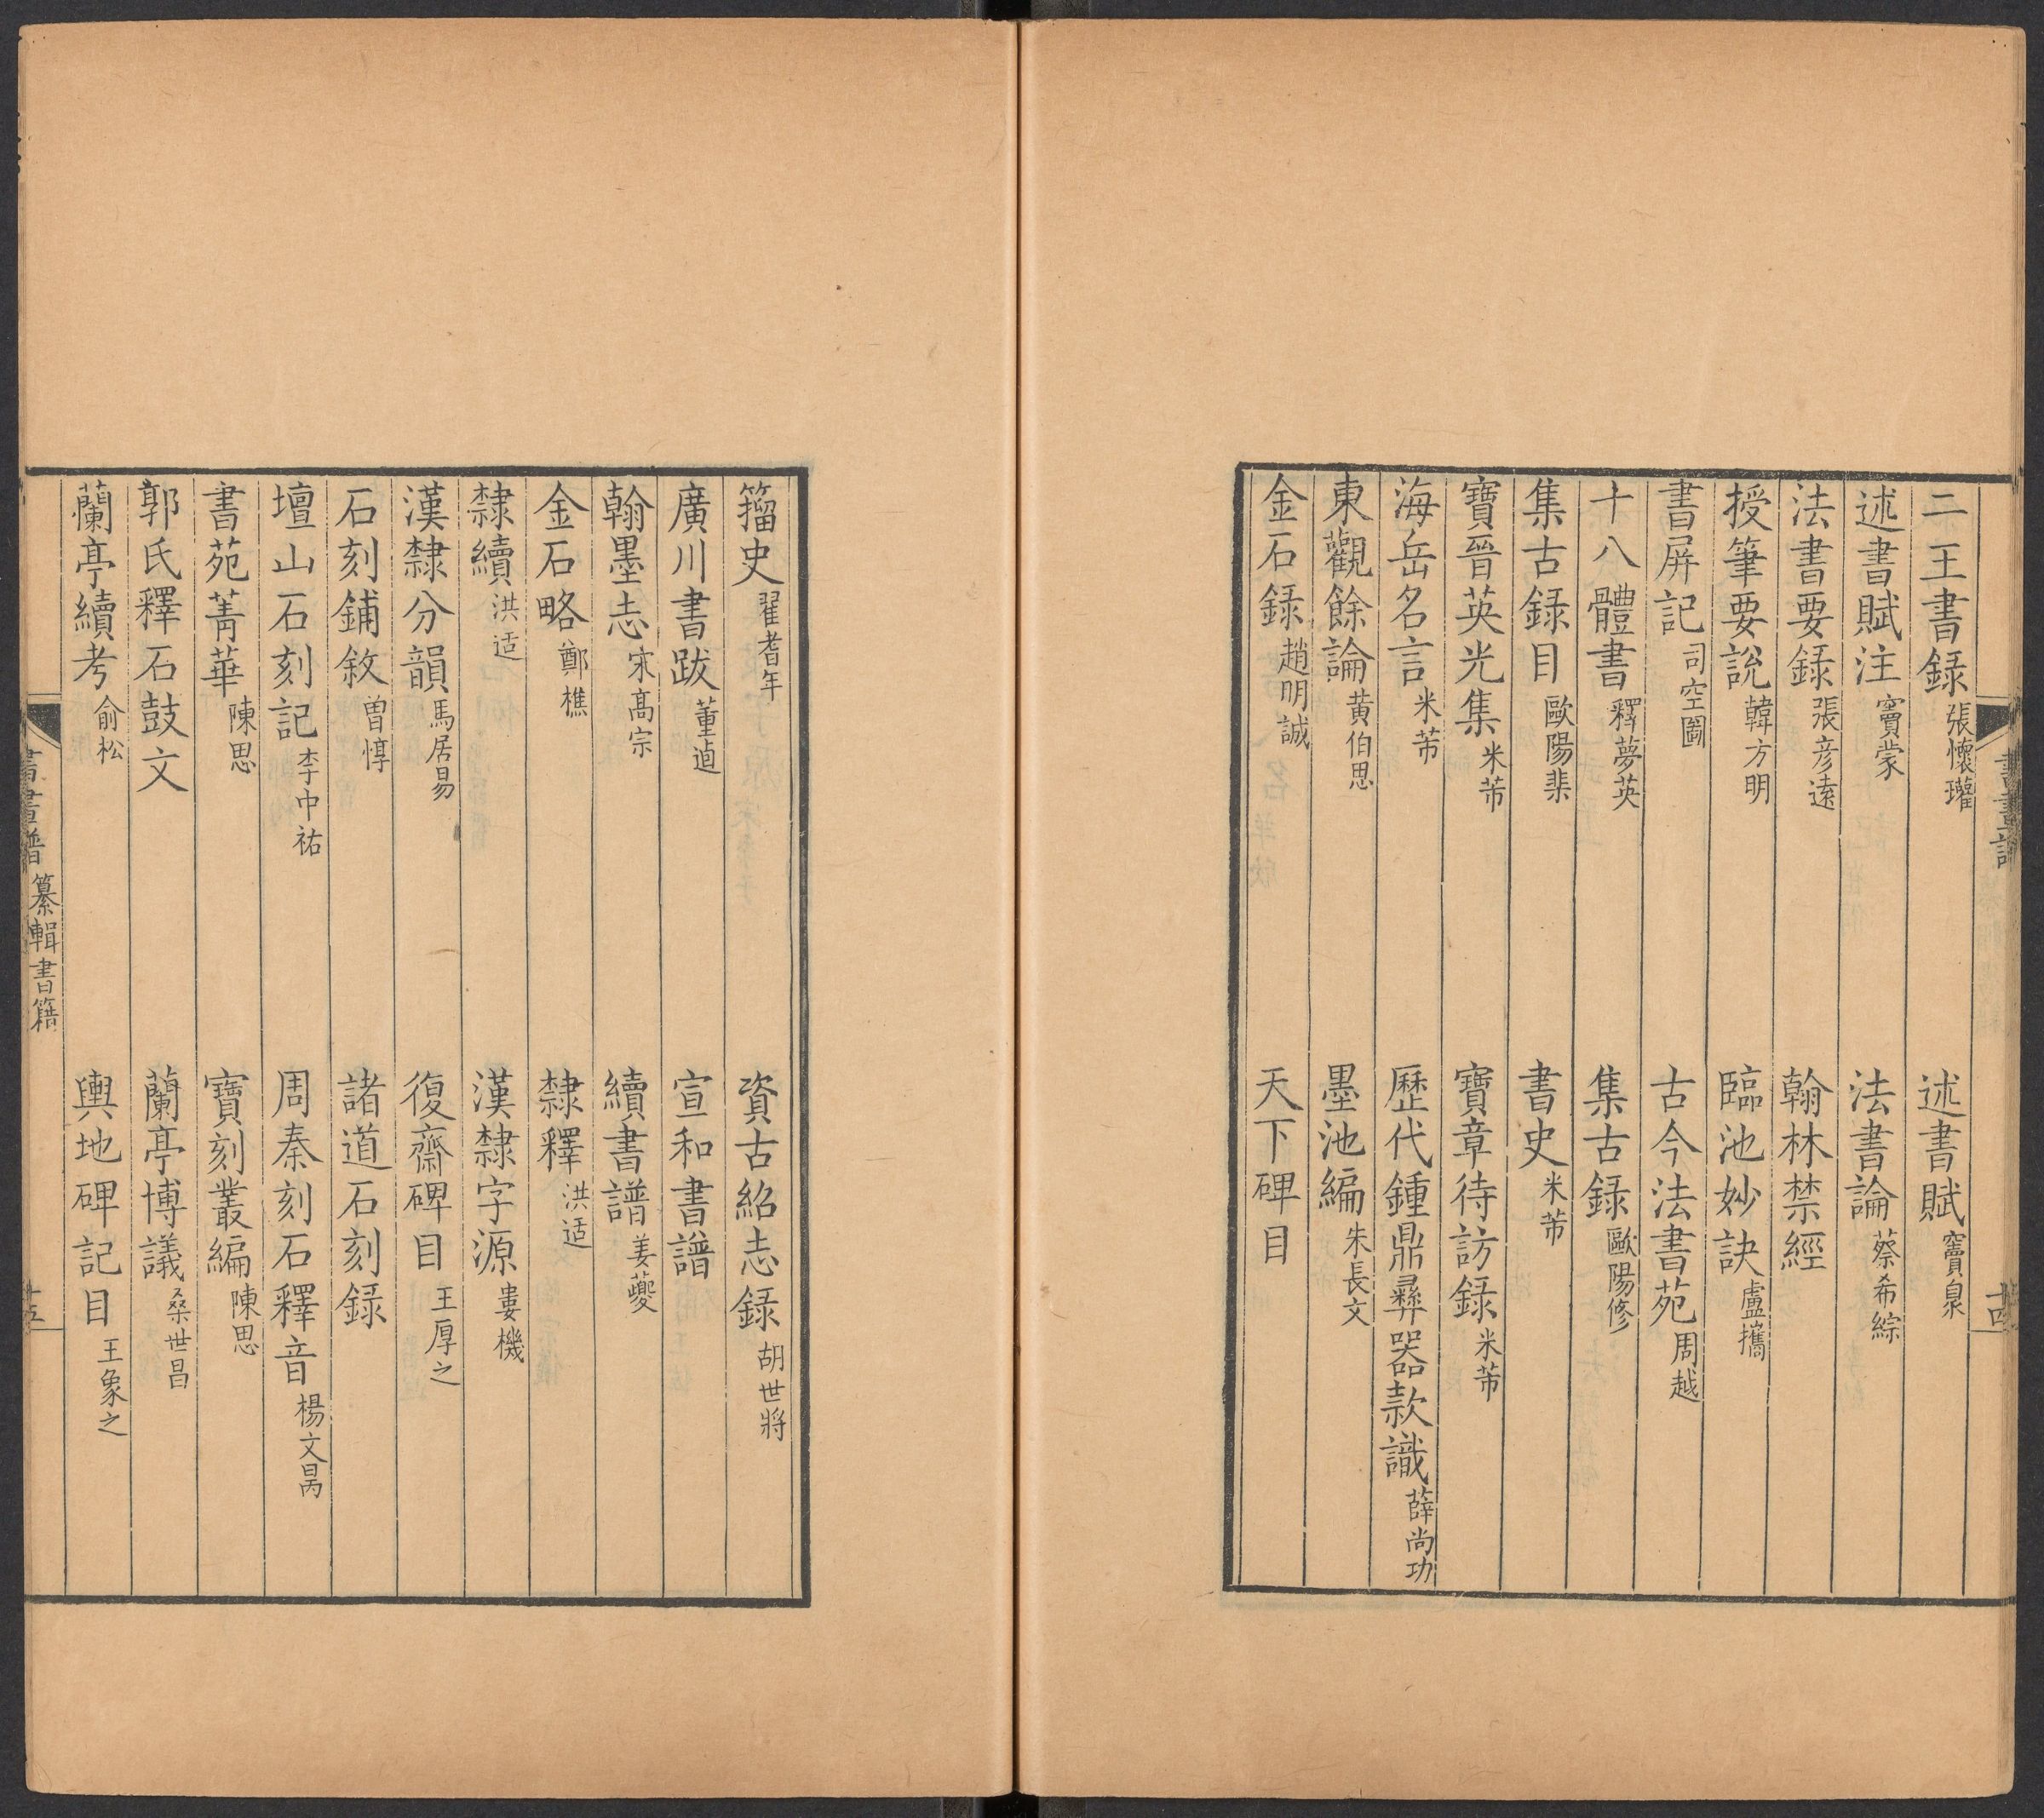 二王書録 張懷瓘 述書賦 竇臮
述書賦注 竇蒙 法書論 蔡希綜
法書要録 張彦遠 翰林禁經
授筆要說 韓方明 臨池妙訣 盧攜
書屏記 司空圖 古今法書苑 周越
十八體書 釋夢英 集古録 歐陽修
集古録目 歐陽棐 書史 米芾
寶晉英光集 米芾 寶章待訪録 米芾
海岳名言 米芾 歷代鍾鼎彝器款識 薛尚功
東觀餘論 黄伯思 墨池編 朱長文
金石録 趙明誠 天下碑目
籀史 翟耆年 資古紹志録 胡世將
廣川書跋 董逌 宣和書譜
翰墨志 宋髙宗 續書譜 姜夔
金石略 鄭樵 隸釋 洪适
隸續 洪适 漢隸字源 婁機
漢隸分韻 馬居易 復齋碑目 王厚之
石刻鋪敘 曾惇 諸道石刻録
壇山石刻記 李中祐 周秦刻石釋音 楊文昺
書苑菁華 陳思 寶刻叢編 陳思
郭氏釋石鼓文 蘭亭博議 桑世昌
蘭亭續考 俞松 輿地碑記目 王象之
書畫譜 纂輯書籍 十五